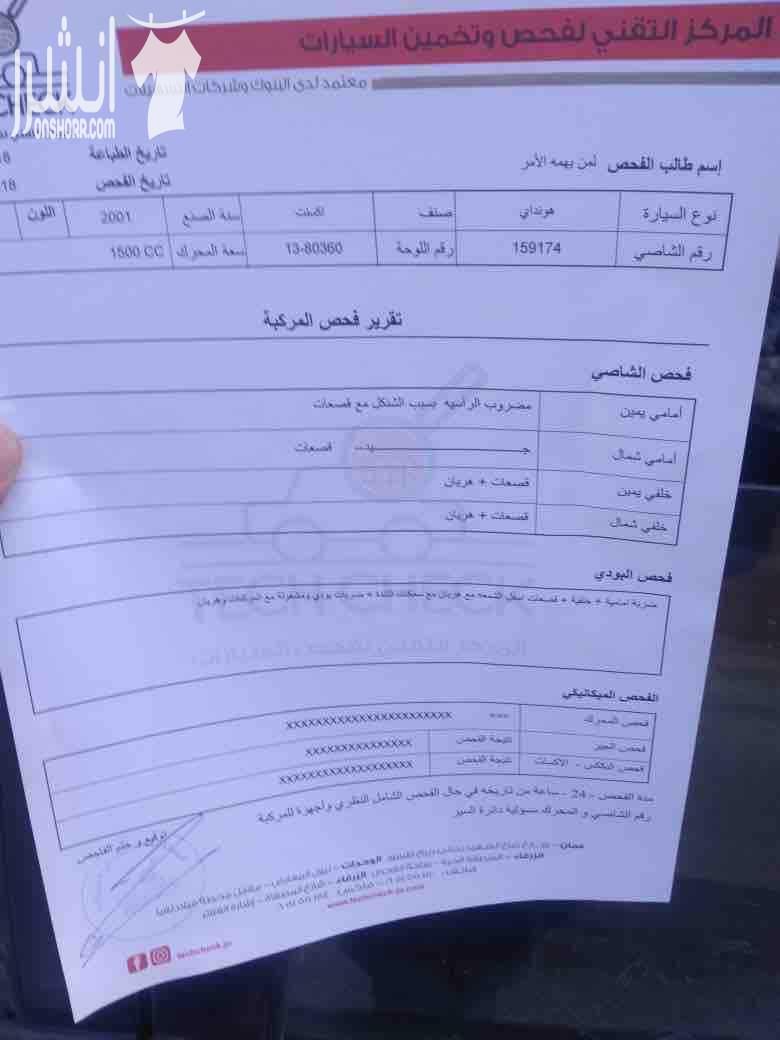 المركز التقني لفحص وتخمين السيارات
معتمد لدى البنوك وشركات
انشر
ONSHORR.COM
إسم طالب الفحص لمن يهمه الأمر
تاريخ الطباعة
تاريخ الفحص 18
نوع السيارة هونداي صنف اكسنت سنة الصنع 2001 اللون
رقم الشاصي 159174 رقم اللوحة 13-80360 سعة المحرك 1500 CC
تقرير فحص المركبة
فحص الشاصي
أمامي يمين مضروب الراسيه بسبب الشنكل مع قصعات
أمامي شمال جـــــيد قصعات
خلفي يمين قصعات + هريان
خلفي شمال قصعات + هريان
TECH CHECK
المركز التقني لفحص السيارات
فحص البودي
ضربة امامية + خلفية + قصعات اسفل الشصه مع هريان مع سمكات التندة + ضربات بودي ومشغولة مع المركبات وهريان
الفحص الميكانيكي
فحص المحرك === xxxxxxxxxxxxxxxxxxxxxxx
فحص الجير نتيجة الفحص xxxxxxxxxxxxxxx
فحص الدفكس - الاكسات نتيجة الفحص xxxxxxxxxxxxxxxxxxx
مدة الفحص - 24 - ساعة من تاريخه في حال الفحص الشامل النظري وأجهزة للمركبة
رقم الشاصي و المحرك مسؤلية دائرة السير
توقيع و ختم الفاحص
www.techcheck-jo.com
techcheck.jo